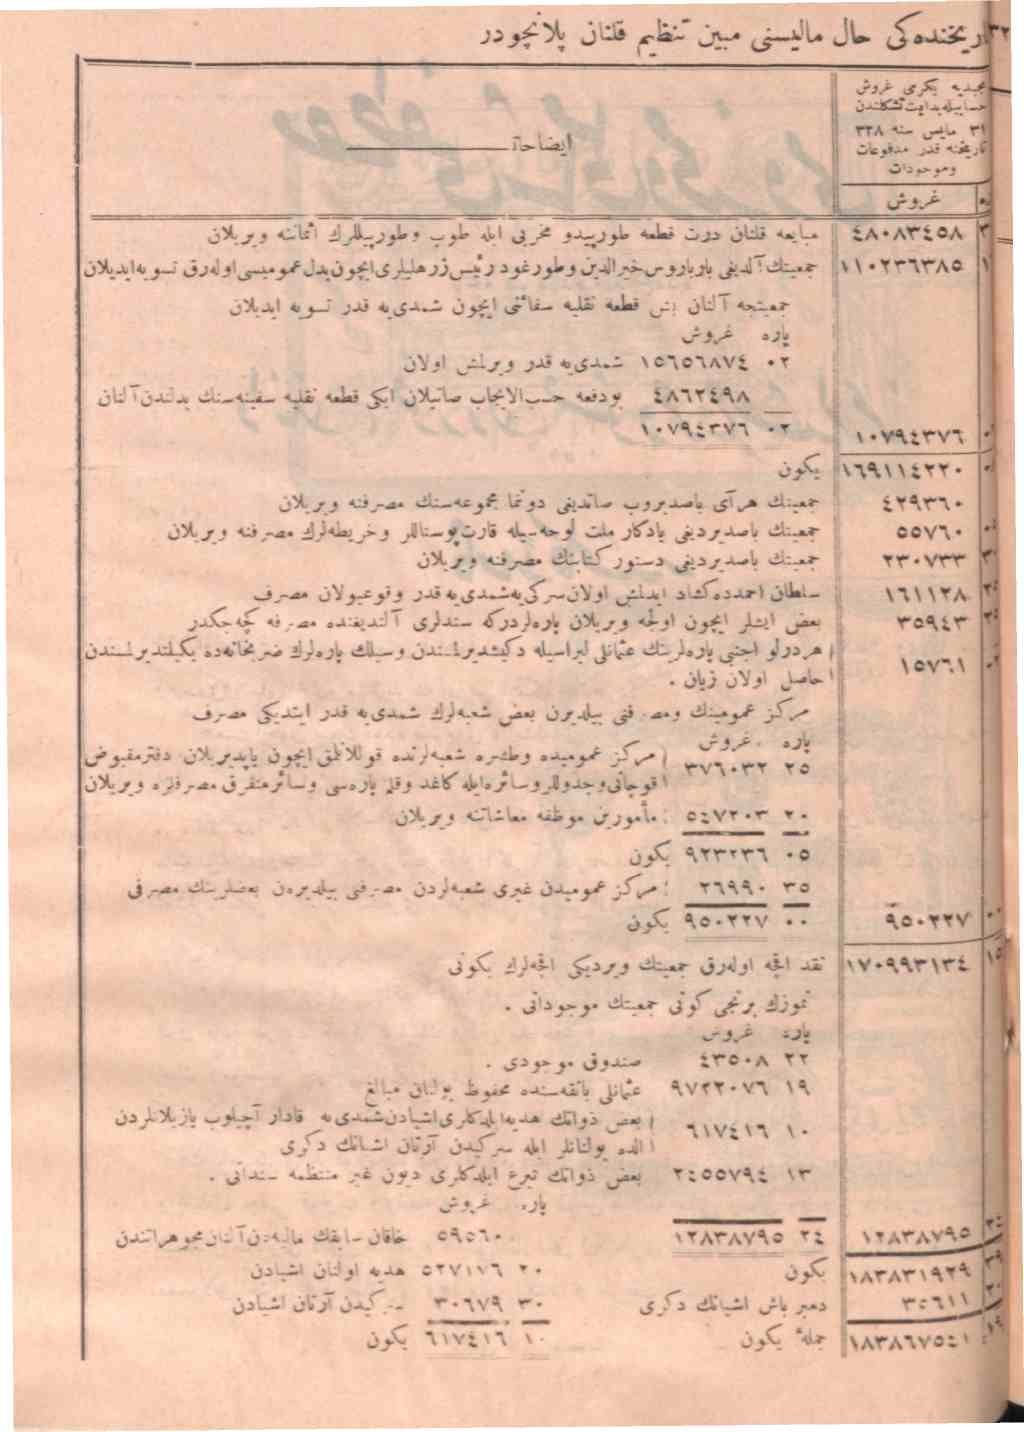 ريخنده‌كى حال ماليسنى مبين تنظيم قلنان پلانچودر
مجيديه يكرمى غروش
حسابيله بدايت تشكلندن
٣١ مايس سنه ٣٢٨
تاريخنه قدر مدفوعات
وموجودات
ايضاحات
غروش
٤٨٠٨٣٤٥٨ مبايعه قلنان درت قطعه طورپيدو مخربى ايله طوپ وطورپيللرك اثماننه ويريلان
١١٠٢٣٦٣٨٥ جمعيتك آلديغى بارباروس خيرالدين وطورغود رئيس زرهليلرى ايچون بدل عموميسى اوله‌رق تسويه ايديلان
جمعيتجه آلنان بش قطعه نقليه سفائنى ايچون شمدى‌يه قدر تسويه ايديلان
پاره غروش
٠٢ ١٥٦٥٦٨٧٤ شمدى‌يه قدر ويرلمش اولان
٤٨٦٢٤٩٨ بودفعه حسب‌الايجاب صاتيلان ايكى قطعه نقليه سفينه‌سنك بدلندن آلنان
١٠٧٩٤٣٧٦ ٠٢ ١٠٧٩٤٣٧٦
١٦٩١١٤٢٢٠ يكون
٤٢٩٣٦٠ جمعيتك هرآى باصديروب صاتديغى دوننما مجموعه‌سنك مصرفنه ويريلان
٥٥٧٦٠ جمعيتك باصديرديغى يادكار ملت لوحه‌سيله قارت‌پوستاللر وخريطه‌لرك مصرفنه ويريلان
٢٣٠٧٣٣ جمعيتك باصديرديغى دستور كتابنك مصرفنه ويريلان
١٦١١٢٨ سلطان احمدده كشاد ايدلمش اولان سركى‌يه شمدى‌يه قدر وقوعبولان مصرف
٣٥٩٤٣ بعض ايشلر ايچون اولجه ويريلان پاره‌لردركه سندلرى آلنديغنده مصرفه كچه‌جكدر
١٥٧٦١ هردرلو اجنبى پاره‌لرينك عثمانلى ليراسيله دكيشديرلمسندن وسيلك پاره‌لرك ضربخانه‌ده يكيلتديرلمسندن
حاصل اولان زيان .
مركز عمومينك ومصرفنى بيلديرن بعض شعبه‌لرك شمدى‌يه قدر ايتديكى مصرف
پاره غروش
٢٥ ٣٧٦٠٣٢ مركز عموميده وطشره شعبه‌لرنده قوللانلمق ايچون ياپديريلان دفترمقبوض
قوچانى وجدوللر وسائره ايله كاغد وقلم پاره‌سى وسائر متفرق مصرفلره ويريلان
٢٠ ٥٤٧٢٠٣ مأمورين موظفه معاشاتنه ويريلان
٠٥ ٩٢٣٢٣٦ يكون
٣٥ ٢٦٩٩٠ مركز عموميدن غيرى شعبه‌لردن مصرفنى بيلديره‌ن بعضلرينك مصرفى
٩٥٠٢٢٧ ٠٠ ٩٥٠٢٢٧ يكون
١٧٠٩٩٣١٣٤ نقد اقچه اوله‌رق جمعيتك ويرديكى اقچه‌لرك يكونى
تموزك برنجى كونى جمعيتك موجوداتى .
پاره غروش
٢٢ ٤٣٥٠٨ صندوق موجودى .
١٩ ٩٧٢٢٠٧٦ عثمانلى بانقه‌سنده محفوظ بولنان مبالغ
١٠ ٦١٧٤١٦ بعض ذواتك هديه ايلدكلرى اشيادن شمدى‌يه قادار آچيلوب يازيلانلردن
الده بولنانلر ايله سركيدن آرتان اشيانك دكرى
١٣ ٢٤٥٥٧٩٤ بعض ذواتك تبرع ايلدكلرى ديون غير منتظمه سنداتى .
پاره غروش
١٢٨٣٨٧٩٥ ٢٤ ١٢٨٣٨٧٩٥ ٥٩٥٦٠ خاقان سابقك ماليه‌دن آلنان مجوهراتندن
١٨٣٨٣١٩٢٩ يكون ٢٠ ٥٢٧١٧٦ هديه اولنان اشيادن
٣٥٦١١ دمير باش اشيانك دكرى ٣٠ ٣٠٦٧٩ سركيدن آرتان اشيادن
١٨٣٨٦٧٥٤١ جملهٔ يكون ١٠ ٦١٧٤١٦ يكون